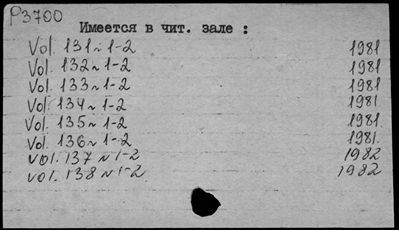 P3700
Имеется в чит. зале :
Vol. 131 N 1-2 1981
Vol. 132 N 1-2 1981
Vol. 133 N 1-2 1981
Vol. 134 N 1-2 1981
Vol. 135 N 1-2 1981
Vol. 136 N 1-2 1981.
Vol. 137 N 1-2 1982
Vol. 138 N 1-2 1982